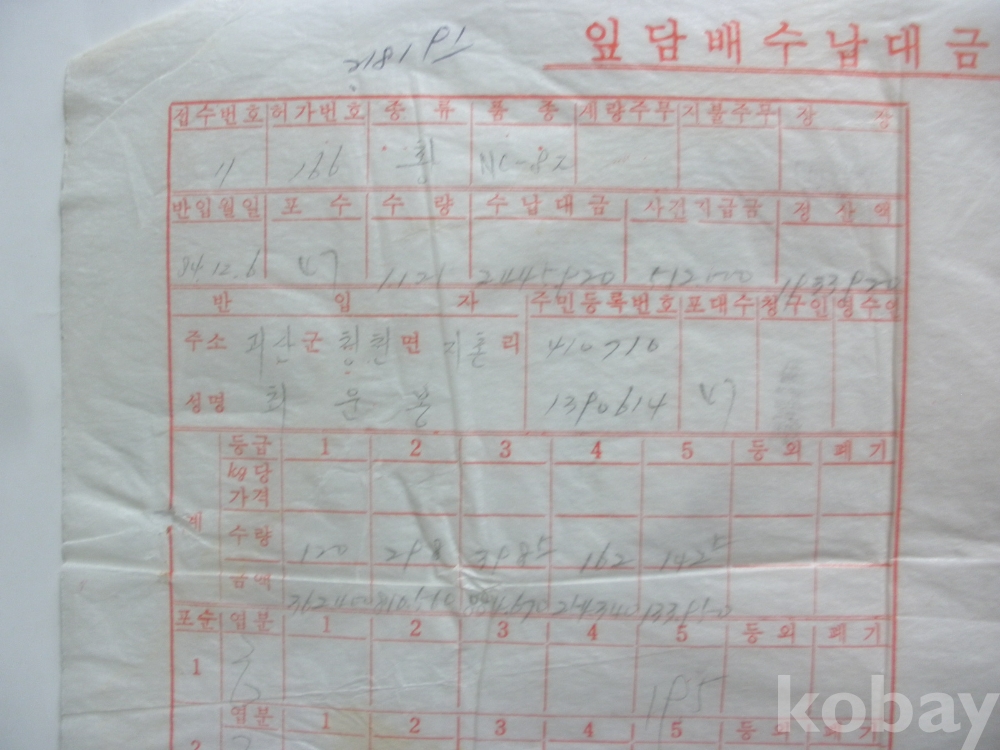 218191
잎담배수납대금
접수번호 허가번호 종류 품종 계량주무 지불주무 장 장
11 166 황 NC-82
반입월일 포수 수량 수납대금 사전지급금 정산액
84.12.6 47 1121 2445520 512000
반 입 자 주민등록번호 포대수 청구인 영수인
주소 괴산군 면 리 410710
성명 최운봉 1390614 47
계 등급 1 2 3 4 5 등외 폐기
kg당
가격
수량 120 298 398.5 162 142.5
금액 362400 810560 884670 254340 133550
포순 엽분 1 2 3 4 5 등외 폐기
1 195
엽분 1 2 3 4 5 등외 폐기
2
kobay